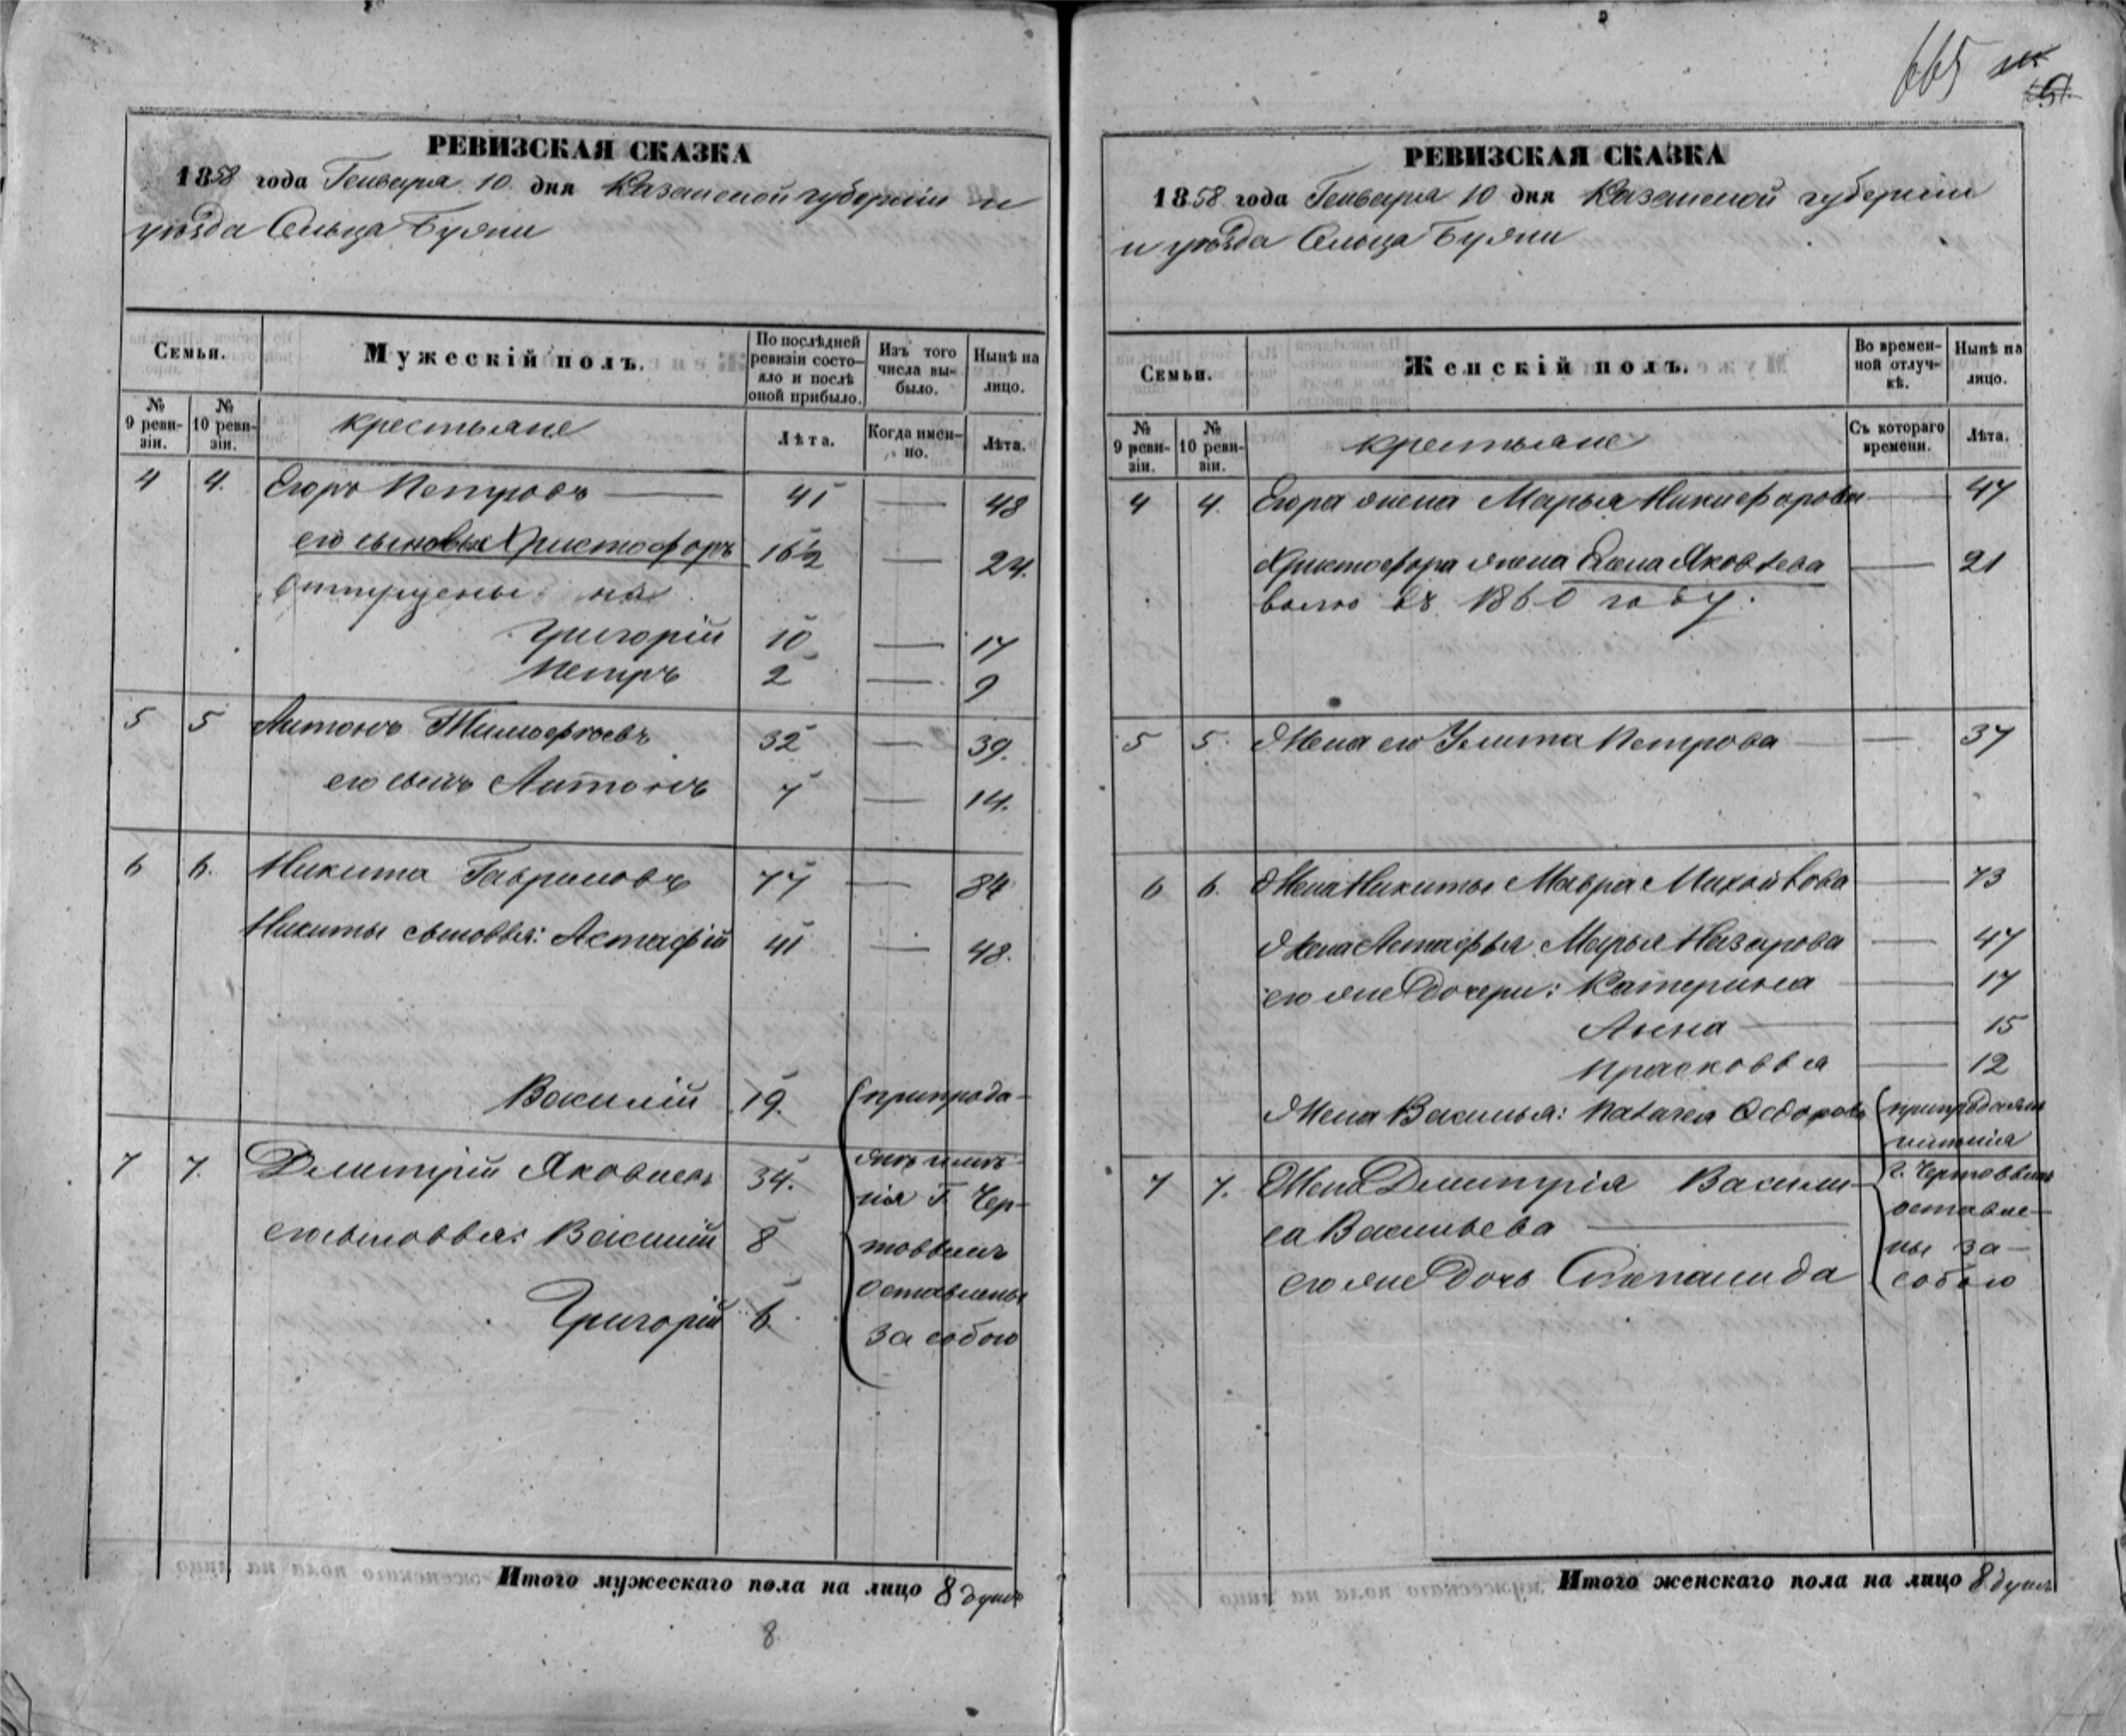 665
РЕВИЗСКАЯ СКАЗКА
1858 года Генваря 10 дня Казанской губернии и
уѣзда Сельца Буяни
Семьи.
Мужескій полъ.
По послѣдней ревизіи состояло и послѣ оной прибыло.
Изъ того числа выбыло.
Нынѣ на лицо.
№ 9 ревизіи.
№ 10 ревизіи.
крестьяне
Лѣта.
Когда именно.
Лѣта.
4 4. Егоръ Петровъ 41 — 48
его сыновья Христофоръ 16½ — 24.
отпущены на
Григорій 10 — 17
Петръ 2 — 9
5 5 Антонъ Тимофѣевъ 32 — 39.
его сынъ Антонъ 7 — 14.
6 6. Никита Гавриловъ 77 — 84
Никиты сыновья: Астафій 41 — 48.
Василій 19.
7 7. Дмитрій Яковлевъ 34.
его сыновья: Василій 8
Григорій 6
при прода-
жѣ имѣ-
нія Г. Чер-
товымъ
оставлены
за собою
Итого мужескаго пола на лицо 8 душъ
8
РЕВИЗСКАЯ СКАЗКА
1858 года Генваря 10 дня Казанской губерніи
и уѣзда Сельца Буяни
Семьи.
Женскій полъ.
Во временной отлучкѣ.
Нынѣ на лицо.
№ 9 ревизіи.
№ 10 ревизіи.
крестьяне
Съ котораго времени.
Лѣта.
4 4. Егора жена Марья Никифорова — 47
Христофора жена Елена Яковлева — 21
волю въ 1860 году.
5 5. Жена его Улита Петрова — 37
6 6. Жена Никиты Мавра Михайлова — 73
Жена Астафья Марья Назарова — 47
его же Дочери: Катерина — 17
Анна — 15
Прасковья — 12
Жена Василья: Наталья Федорова
7 7. Жена Дмитрія Васили-
са Васильева
его же Дочь Степанида
при продажѣ
имѣнія
г. Чертовымъ
оставле-
ны за-
собою
Итого женскаго пола на лицо 8 душъ